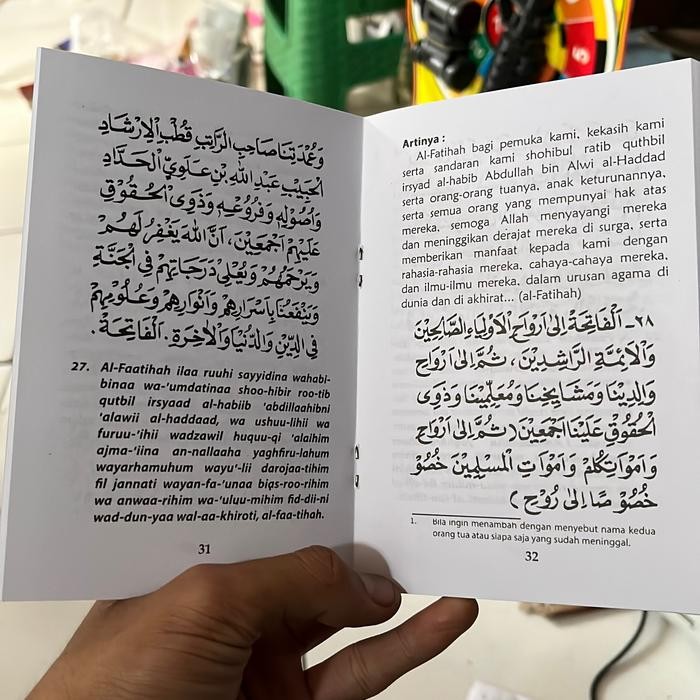 وَعُمْدَتِنَا صَاحِبِ الرَّاتِبِ قُطْبِ الْاِرْشَادِ
الْحَبِيْبِ عَبْدِ اللهِ بْنِ عَلَوِيِّ الْحَدَّادِ
وَاُصُوْلِهِ وَفُرُوْعِهِ وَذَوِى الْحُقُوْقِ
عَلَيْهِمْ اَجْمَعِيْنَ، اَنَّ اللهَ يَغْفِرُ لَهُمْ
وَيَرْحَمُهُمْ وَيُعْلِى دَرَجَاتِهِمْ فِى الْجَنَّةِ
وَيَنْفَعُنَا بِاَسْرَارِهِمْ وَاَنْوَارِهِمْ وَعُلُوْمِهِمْ
فِى الدِّيْنِ وَالدُّنْيَا وَالْاٰخِرَةِ. اَلْفَاتِحَةْ.
27. Al-Faatihah ilaa ruuhi sayyidina wahabi-
binaa wa-'umdatinaa shoo-hibir roo-tib
qutbil irsyaad al-habiib 'abdillaahibni
'alawii al-haddaad, wa ushuu-lihii wa
furuu-'ihii wadzawil huquu-qi 'alaihim
ajma-'iina an-nallaaha yaghfiru-lahum
wayarhamuhum wayu'-lii darojaa-tihim
fil jannati wayan-fa-'unaa biqs-roo-rihim
wa anwaa-rihim wa-'uluu-mihim fid-dii-ni
wad-dun-yaa wal-aa-khiroti, al-faa-tihah.
31
Artinya :
Al-Fatihah bagi pemuka kami, kekasih kami
serta sandaran kami shohibul ratib quthbil
irsyad al-habib Abdullah bin Alwi al-Haddad
serta orang-orang tuanya, anak keturunannya,
serta semua orang yang mempunyai hak atas
mereka, semoga Allah menyayangi mereka
dan meninggikan derajat mereka di surga, serta
memberikan manfaat kepada kami dengan
rahasia-rahasia mereka, cahaya-cahaya mereka,
dan ilmu-ilmu mereka, dalam urusan agama di
dunia dan di akhirat... (al-Fatihah)
٢٨- اَلْفَاتِحَةُ اِلٰى اَرْوَاحِ الْاَوْلِيَاءِ الصَّالِحِيْنَ
وَالْاَئِمَّةِ الرَّاشِدِيْنَ، ثُمَّ اِلٰى اَرْوَاحِ
وَالِدِيْنَا وَمَشَايِخِنَا وَمُعَلِّمِيْنَا وَذَوِى
الْحُقُوْقِ عَلَيْنَا اَجْمَعِيْنَ (ثُمَّ اِلٰى اَرْوَاحِ
وَاَمْوَاتِكُمْ وَاَمْوَاتِ الْمُسْلِمِيْنَ خُصُوْ
خُصُوْ صًا اِلٰى رُوْحِ )
1. Bila ingin menambah dengan menyebut nama kedua
orang tua atau siapa saja yang sudah meninggal.
32